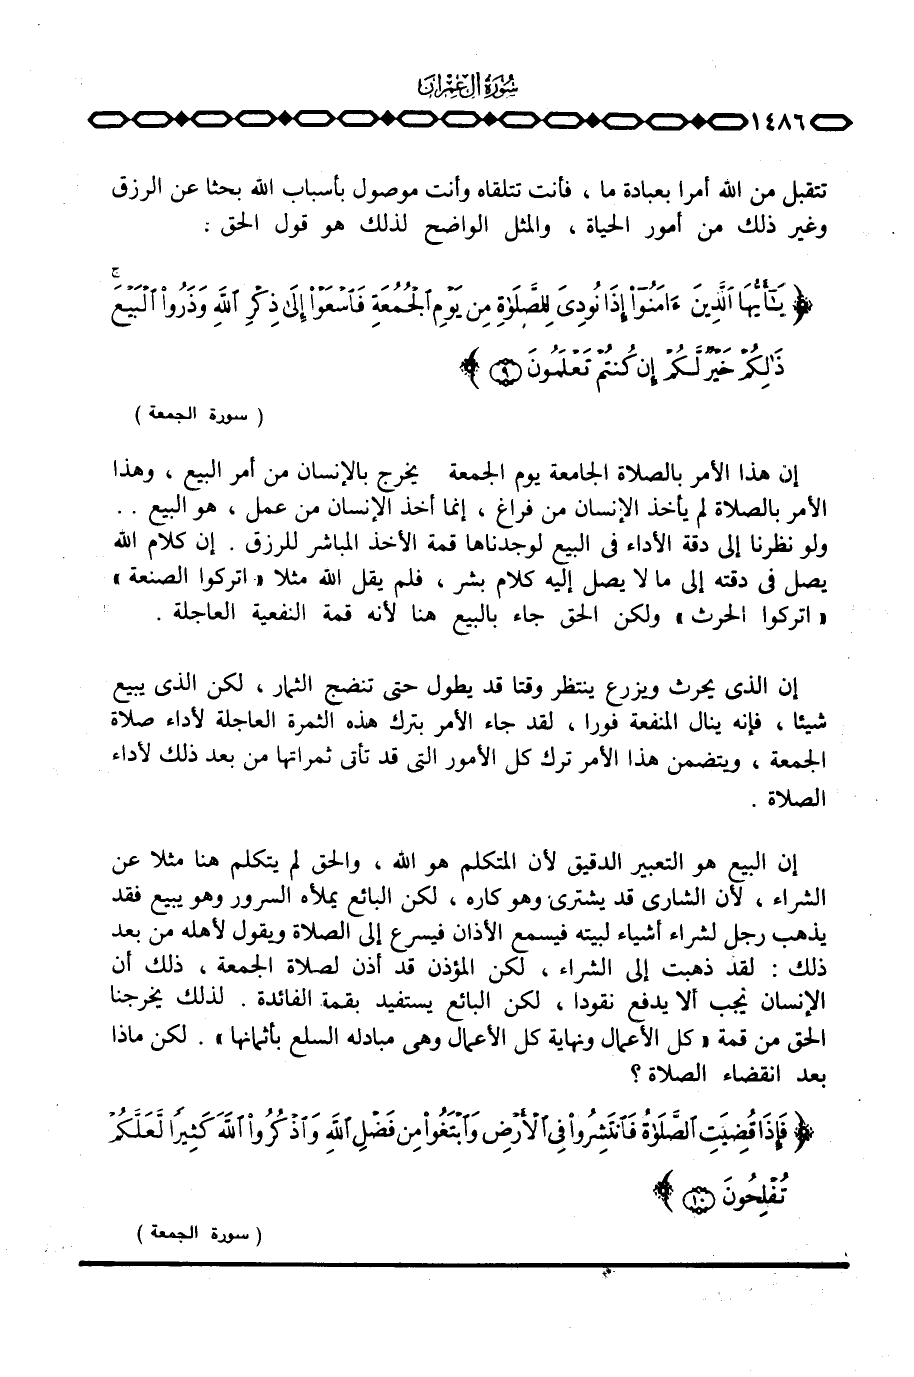 سورة آل عمران
١٤٨٦
تتقبل من الله أمرا بعبادة ما ، فأنت تتلقاه وأنت موصول بأسباب الله بحثا عن الرزق
وغير ذلك من أمور الحياة ، والمثل الواضح لذلك هو قول الحق :
﴿ يَٰٓأَيُّهَا ٱلَّذِينَ ءَامَنُوٓا۟ إِذَا نُودِىَ لِلصَّلَوٰةِ مِن يَوْمِ ٱلْجُمُعَةِ فَٱسْعَوْا۟ إِلَىٰ ذِكْرِ ٱللَّهِ وَذَرُوا۟ ٱلْبَيْعَ ۚ
ذَٰلِكُمْ خَيْرٌ لَّكُمْ إِن كُنتُمْ تَعْلَمُونَ ٩ ﴾
( سورة الجمعة )
إن هذا الأمر بالصلاة الجامعة يوم الجمعة يخرج بالإنسان من أمر البيع ، وهذا
الأمر بالصلاة لم يأخذ الإنسان من فراغ ، إنما أخذ الإنسان من عمل ، هو البيع . .
ولو نظرنا إلى دقة الأداء فى البيع لوجدناها قمة الأخذ المباشر للرزق . إن كلام الله
يصل فى دقته إلى ما لا يصل إليه كلام بشر ، فلم يقل الله مثلا « اتركوا الصنعة »
« اتركوا الحرث » ولكن الحق جاء بالبيع هنا لأنه قمة النفعية العاجلة .
إن الذى يحرث ويزرع ينتظر وقتا قد يطول حتى تنضج الثمار ، لكن الذى يبيع
شيئا ، فإنه ينال المنفعة فورا ، لقد جاء الأمر بترك هذه الثمرة العاجلة لأداء صلاة
الجمعة ، ويتضمن هذا الأمر ترك كل الأمور التى قد تأتى ثمراتها من بعد ذلك لأداء
الصلاة .
إن البيع هو التعبير الدقيق لأن المتكلم هو الله ، والحق لم يتكلم هنا مثلا عن
الشراء ، لأن الشارى قد يشترى وهو كاره ، لكن البائع يملأه السرور وهو يبيع فقد
يذهب رجل لشراء أشياء لبيته فيسمع الأذان فيسرع إلى الصلاة ويقول لأهله من بعد
ذلك : لقد ذهبت إلى الشراء ، لكن المؤذن قد أذن لصلاة الجمعة ، ذلك أن
الإنسان يحب ألا يدفع نقودا ، لكن البائع يستفيد بقمة الفائدة . لذلك يخرجنا
الحق من قمة « كل الأعمال ونهاية كل الأعمال وهى مبادله السلع بأثمانها » . لكن ماذا
بعد انقضاء الصلاة ؟
﴿ فَإِذَا قُضِيَتِ ٱلصَّلَوٰةُ فَٱنتَشِرُوا۟ فِى ٱلْأَرْضِ وَٱبْتَغُوا۟ مِن فَضْلِ ٱللَّهِ وَٱذْكُرُوا۟ ٱللَّهَ كَثِيرًا لَّعَلَّكُمْ
تُفْلِحُونَ ١٠ ﴾
( سورة الجمعة )